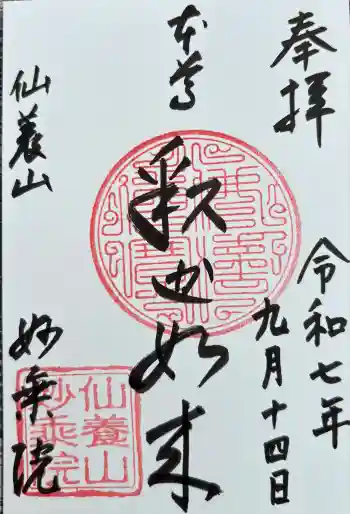 奉拝
令和七年
九月十四日
本尊
釈迦如来
仙養山
妙乗院
仙養山
妙乗院